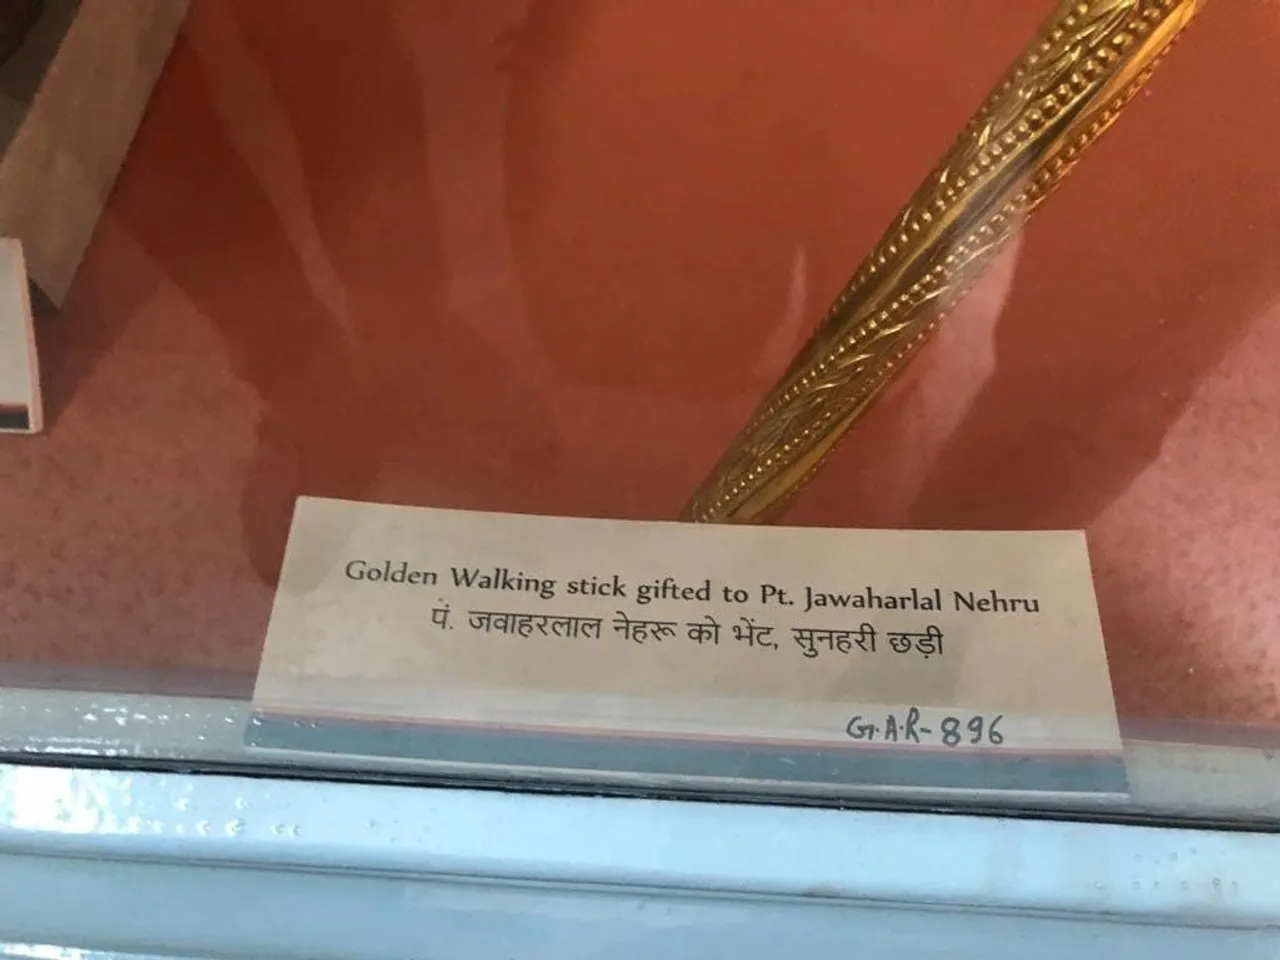 Golden Walking stick gifted to Pt. Jawaharlal Nehru
पं. जवाहरलाल नेहरू को भेंट, सुनहरी छड़ी
G.A.R-896